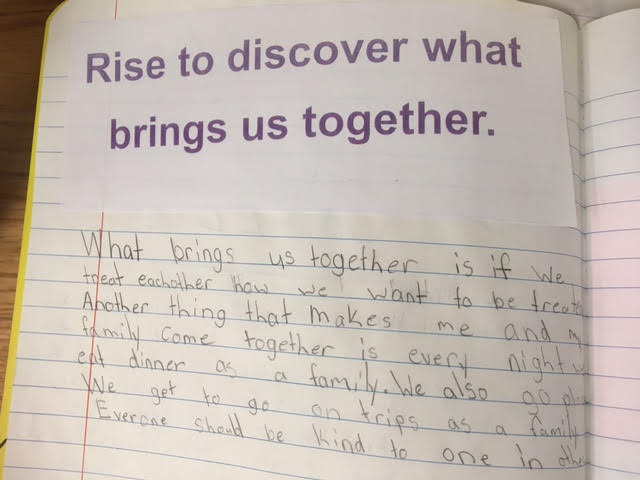 Rise to discover what
brings us together.
What brings us together is if we
treat eachother how we want to be treate
Another thing that makes me and m
family come together is every night w
eat dinner as a family. We also go plac
We get to go on trips as a family
Everone should be kind to one in othe